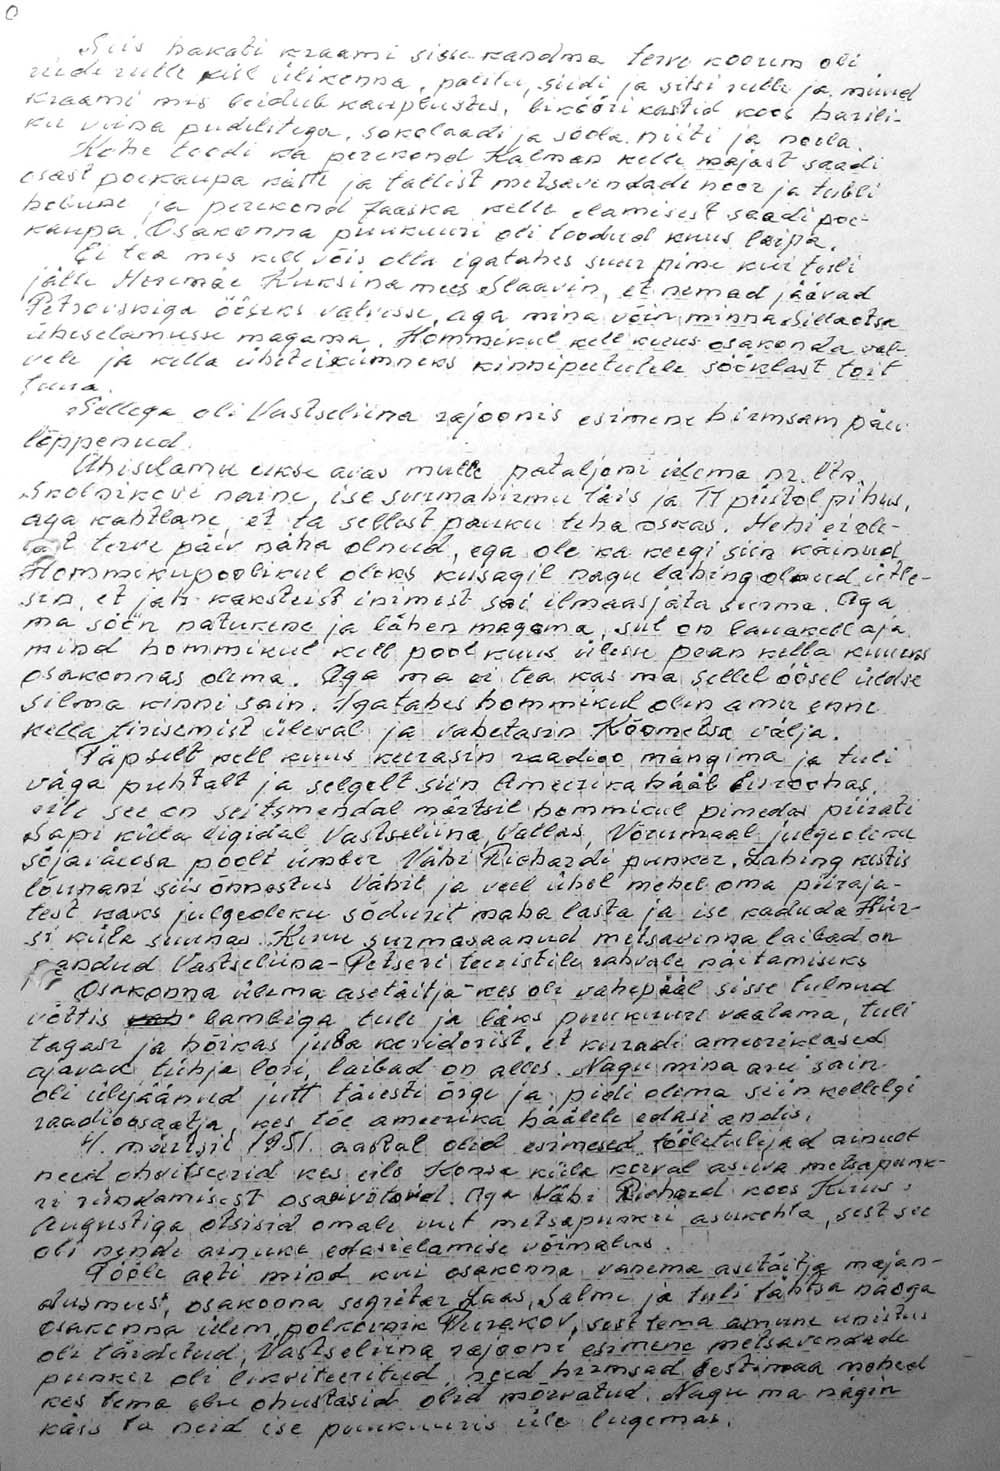 Siis hakati kraami sisse kandma terve koorem oli
riide rulle küll ülikonna, palitu, siidi ja sitsi rulle ja muud
kraami mis leidub kauplustes, likööri kastid koos harili-
ku viina pudelitega, sokolaadi ja soola niiti ja nõela.
Kohe toodi ka perekond Kalman kelle majast saadi
osast poekaupa kätte ja tallist metsavendade noor ja tubli
hobune ja perekond Jaaska kelle elamisest saadi poe-
kaupa. Osakonna puukuuri oli toodud kuus laipa.
Ei tea mis kell võis olla igatahes suur pime kui tuli
jälle Heremäe Kuksina mees Slaavin, et nemad jäävad
Petrovskiga ööseks valvesse, aga mina võin minna Sillaotsa
ühiselamusse magama. Hommikul kell kuus osakonda val-
vele ja kella üheteistkümneks kinnipeetutele sööklast toit
tuua.
Sellega oli Vastseliina rajoonis esimene hirmsam päev
lõppenud.
Ühiselamu ukse avas mulle pataljoni ülema nr. ltn.
Skolnikovi naine, ise surmahirmu täis ja TT püstol pihus,
aga kahtlane, et ta sellest pauku teha oskas. Mehi ei ole-
vat terve päev näha olnud, ega ole ka keegi siin käinud
Hommikupoolikul oleks kusagil nagu lahing olnud ütle-
sin, et jah kaksteist inimest sai ilmaasjata surma. Aga
ma söön natukene ja lähen magama, sul on lauakell aja
mind hommikul kell pool kuus ülesse pean kella kuueks
osakonnas olema. Aga ma ei tea kas ma sellel öösel üldse
silma kinni sain. Igatahes hommikul olin amu enne
kella tirisemist üleval ja vahetasin Kõometsa välja.
Täpselt kell kuus keerasin raadio mängima ja tuli
väga puhtalt ja selgelt siin Ameerika hääl Euroopas,
eile see on seitsmendal märtsil hommikul pimedas piirati
Sapi küla ligidal Vastseliina, Vallas, Võrumaal julgeoleku
sõjaväeosa poolt ümber Vähi Richardi punker. Lahing kestis
lõunani siis õnnestus Vähil ja veel ühel mehel oma piiraja-
test kaks julgeoleku sõdurit maha lasta ja ise kaduda Hür-
si küla suunas. Kuue surmasaanud metsavenna laibad on
pandud Vastseliina-Petseri teeristile rahvale näitamiseks
Osakonna ülema asetäitja kes oli vahepääl sisse tulnud
võttis lambiga tule ja läks puukuuri vaatama, tuli
tagasi ja hõikas juba koridorist, et kuradi ameeriklased
ajavad tühja lori, laibad on alles. Nagu mina aru sain
oli ülejäänud jutt täiesti õige ja pidi olema siin kellelgi
raadiosaatja, kes tõe ameerika häälele edasi andis.
4. märtsil 1951. aastal olid esimesed tööletulijad ainult
need ohvitserid kes eile Konsa küla kõrval asuva metsapunk-
ri ründamisest osavõtsid. Aga Vähi Richard koos Kirus
Augustiga otsisid omale uut metsapunkri asukohta, sest see
oli nende ainuke edasielamise võimalus.
Tööle aeti mind kui osakonna vanema asetäitja majan-
dusmees, osakoona segretär Laas, Salme ja tuli tähtsa näoga
osakonna ülem, polkovnik Purakov, sest tema ainune unistus
oli täidetud, Vastseliina rajooni esimene metsavendade
punker oli likviteeritud, need hirmsad Eestimaa mehed
kes tema elu ohustasid olid mõrvatud. Nagu ma nägin
käis ta neid ise puukuuris üle lugemas.